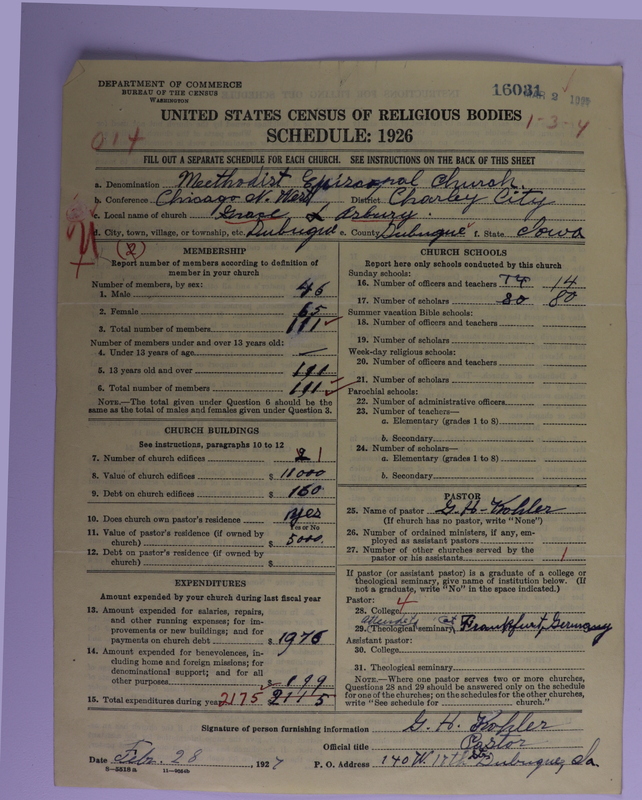 DEPARTMENT OF COMMERCE
BUREAU OF THE CENSUS
WASHINGTON
16031
UNITED STATES CENSUS OF RELIGIOUS BODIES
1-3-4
SCHEDULE: 1926
014
FILL OUT A SEPARATE SCHEDULE FOR EACH CHURCH. SEE INSTRUCTIONS ON THE BACK OF THIS SHEET
a. Denomination Meethodist Episcopal Church.
b. Conference Chicago N. West District Charley City
c. Local name of church Grace & Asbury.
d. City, town, village, or township, etc. Dubuque e. County Dubuque f. State Iowa
(2)
MEMBERSHIP
Report number of members according to definition of
member in your church
Number of members, by sex:
1. Male 46
2. Female 65
3. Total number of members 111
Number of members under and over 13 years old:
4. Under 13 years of age —
5. 13 years old and over 111
6. Total number of members 111
NOTE.—The total given under Question 6 should be the
same as the total of males and females given under Question 3.
CHURCH BUILDINGS
See instructions, paragraphs 10 to 12
7. Number of church edifices 2 1
8. Value of church edifices $ 11000
9. Debt on church edifices $ 160
10. Does church own pastor's residence yes
Yes or No
11. Value of pastor's residence (if owned by
church) $ 5000.
12. Debt on pastor's residence (if owned by
church) $
EXPENDITURES
Amount expended by your church during last fiscal year
13. Amount expended for salaries, repairs,
and other running expenses; for im-
provements or new buildings; and for
payments on church debt $ 1976
14. Amount expended for benevolences, in-
cluding home and foreign missions; for
denominational support; and for all
other purposes $ 199
15. Total expenditures during year 2175 2115
CHURCH SCHOOLS
Report here only schools conducted by this church
Sunday schools:
16. Number of officers and teachers 14 14
17. Number of scholars 80 80
Summer vacation Bible schools:
18. Number of officers and teachers
19. Number of scholars
Week-day religious schools:
20. Number of officers and teachers
21. Number of scholars
Parochial schools:
22. Number of administrative officers
23. Number of teachers—
a. Elementary (grades 1 to 8)
b. Secondary
24. Number of scholars—
a. Elementary (grades 1 to 8)
b. Secondary
PASTOR
25. Name of pastor G. H. Kohler
(If church has no pastor, write "None")
26. Number of ordained ministers, if any, em-
ployed as assistant pastors
27. Number of other churches served by the
pastor or his assistants 1
If pastor (or assistant pastor) is a graduate of a college or
theological seminary, give name of institution below. (If
not a graduate, write "No" in the space indicated.)
Pastor:
28. College 4
29. (Theological seminary) Frankfurt, Germany
Assistant pastor:
30. College
31. Theological seminary
NOTE.—Where one pastor serves two or more churches,
Questions 28 and 29 should be answered only on the schedule
for one of the churches; on the schedules for the other churches,
write "See schedule for church."
Signature of person furnishing information G. H. Kohler
Official title Pastor
Date Feb. 28, 1927 P. O. Address 140 W. 17th St. Dubuque, Ia.
8-5518a 11-9264b